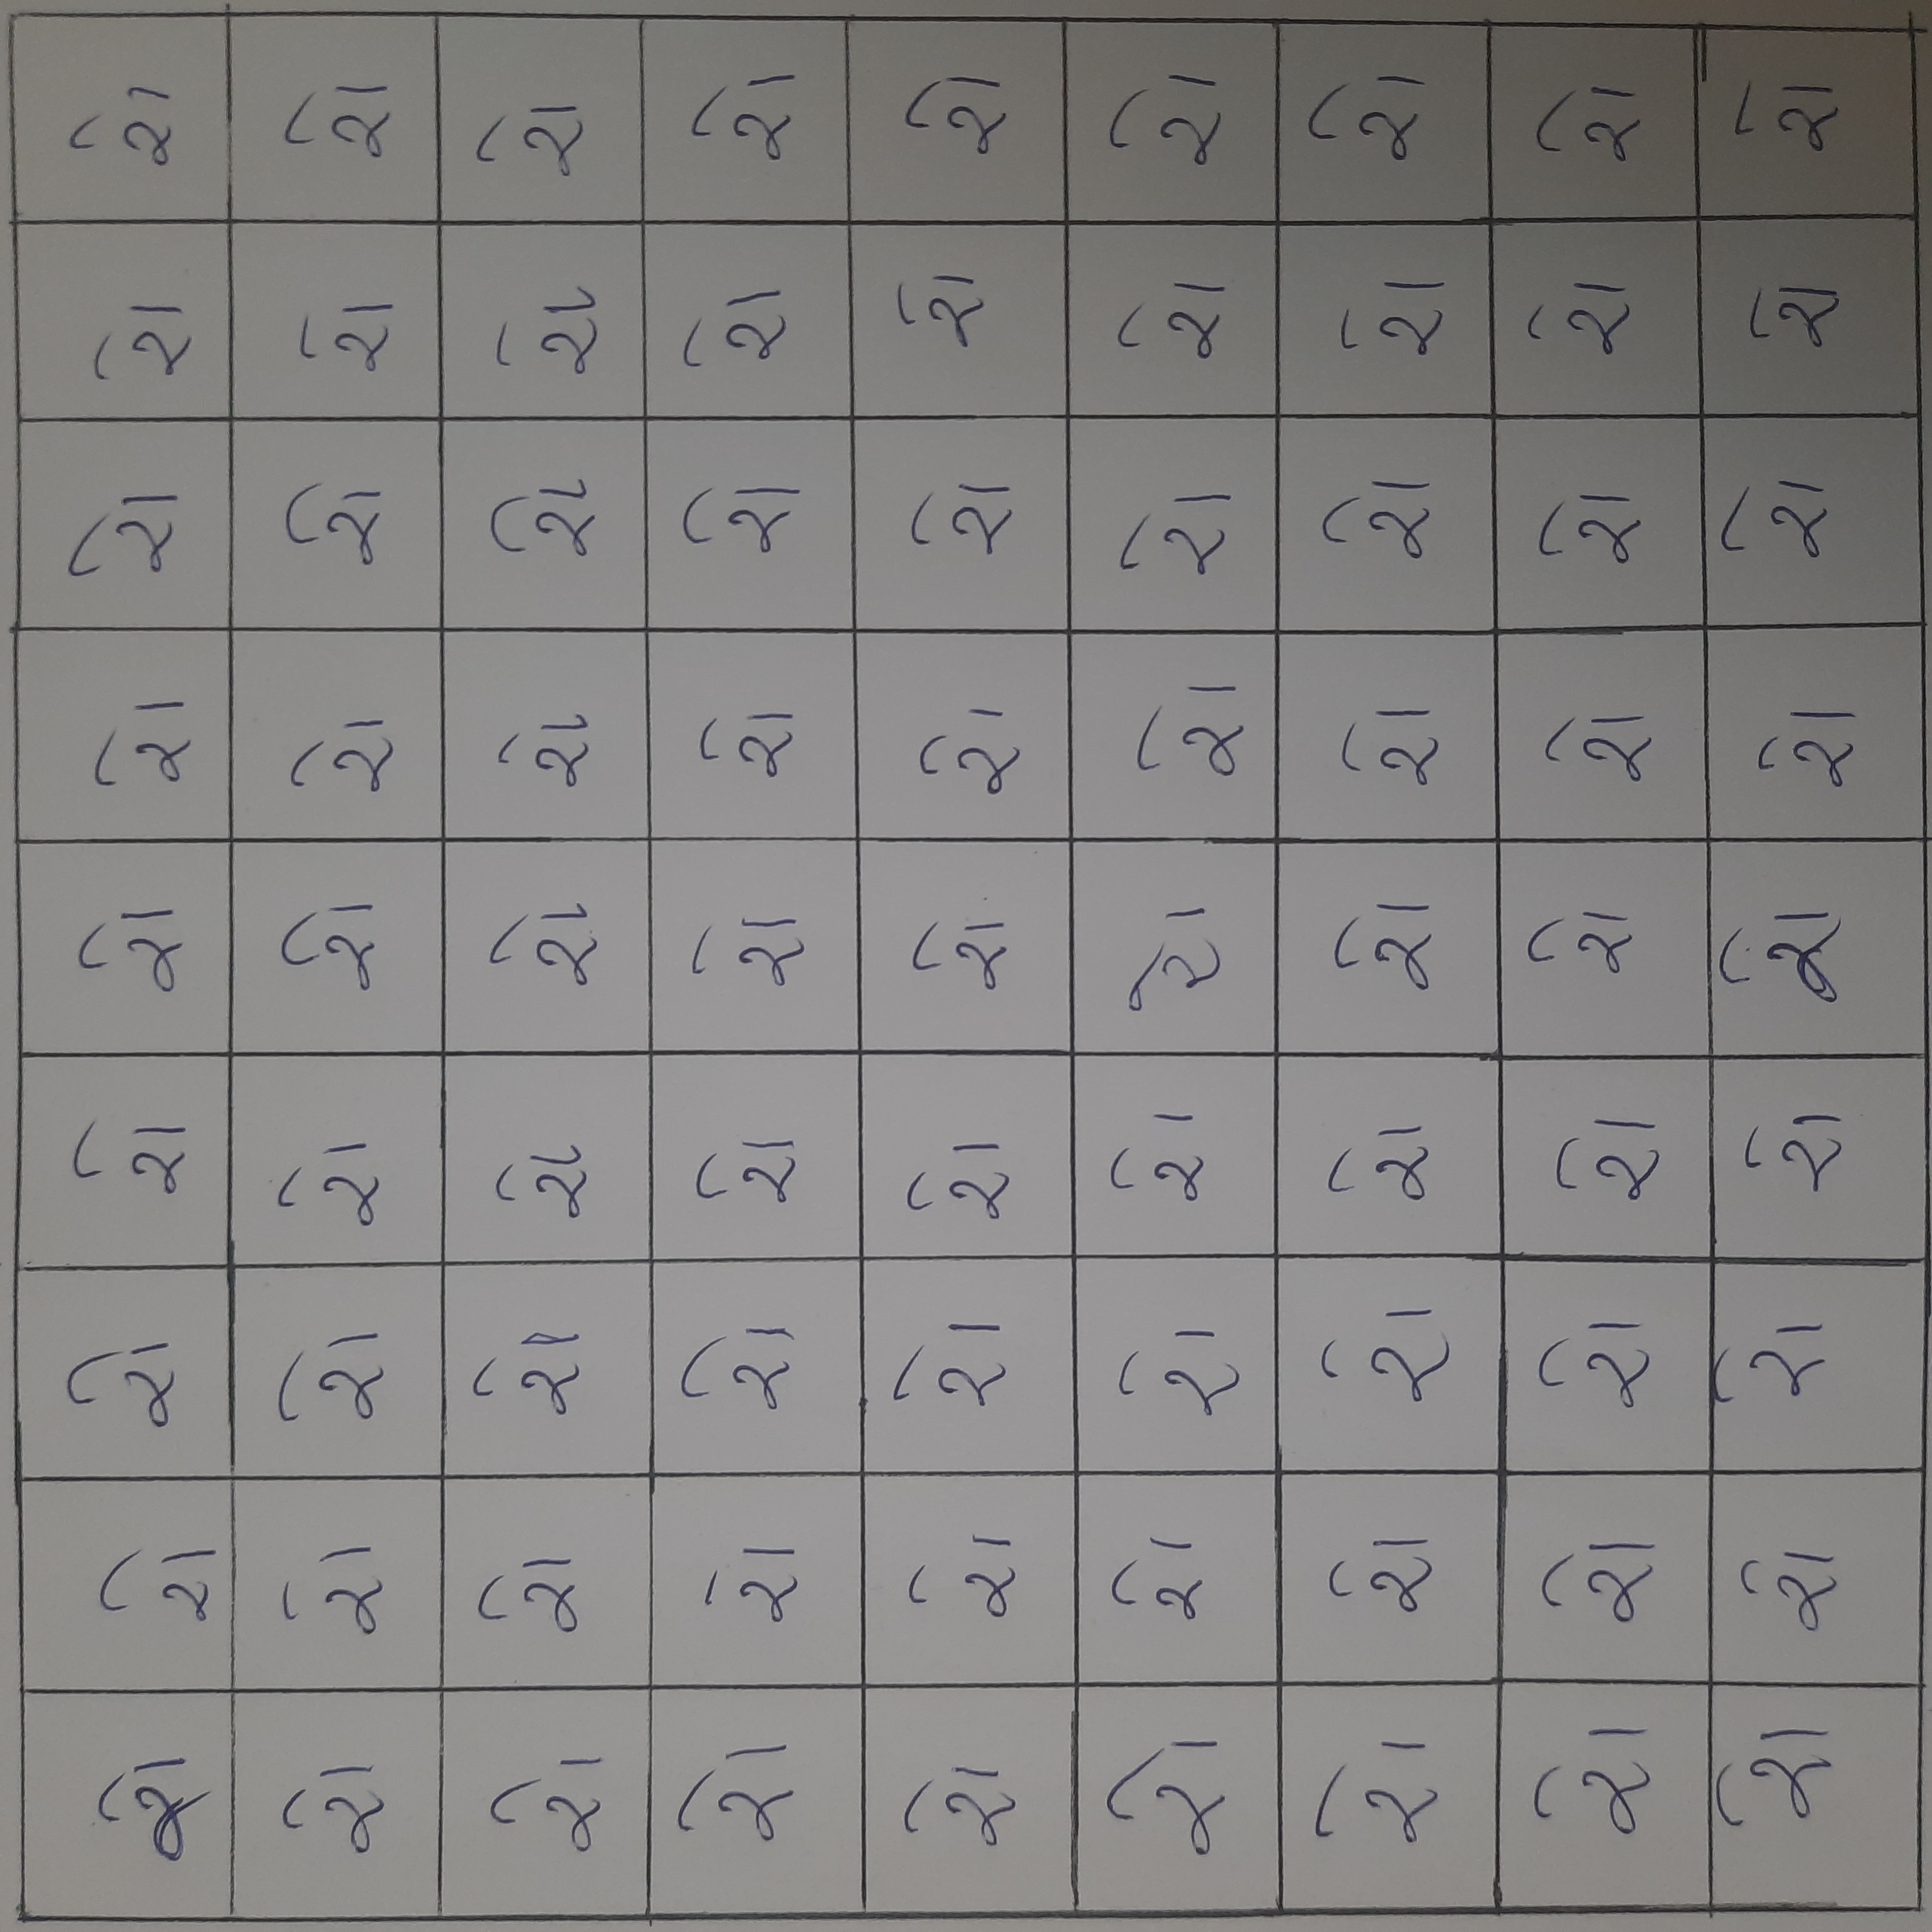 રો રો રો રો રો રો રો રો રો
રો રો રો રો રો રો રો રો રો
રો રો રો રો રો રો રો રો રો
રો રો રો રો રો રો રો રો રો
રો રો રો રો રો રો રો રો રો
રો રો રો રો રો રો રો રો રો
રો રો રો રો રો રો રો રો રો
રો રો રો રો રો રો રો રો રો
રો રો રો રો રો રો રો રો રો